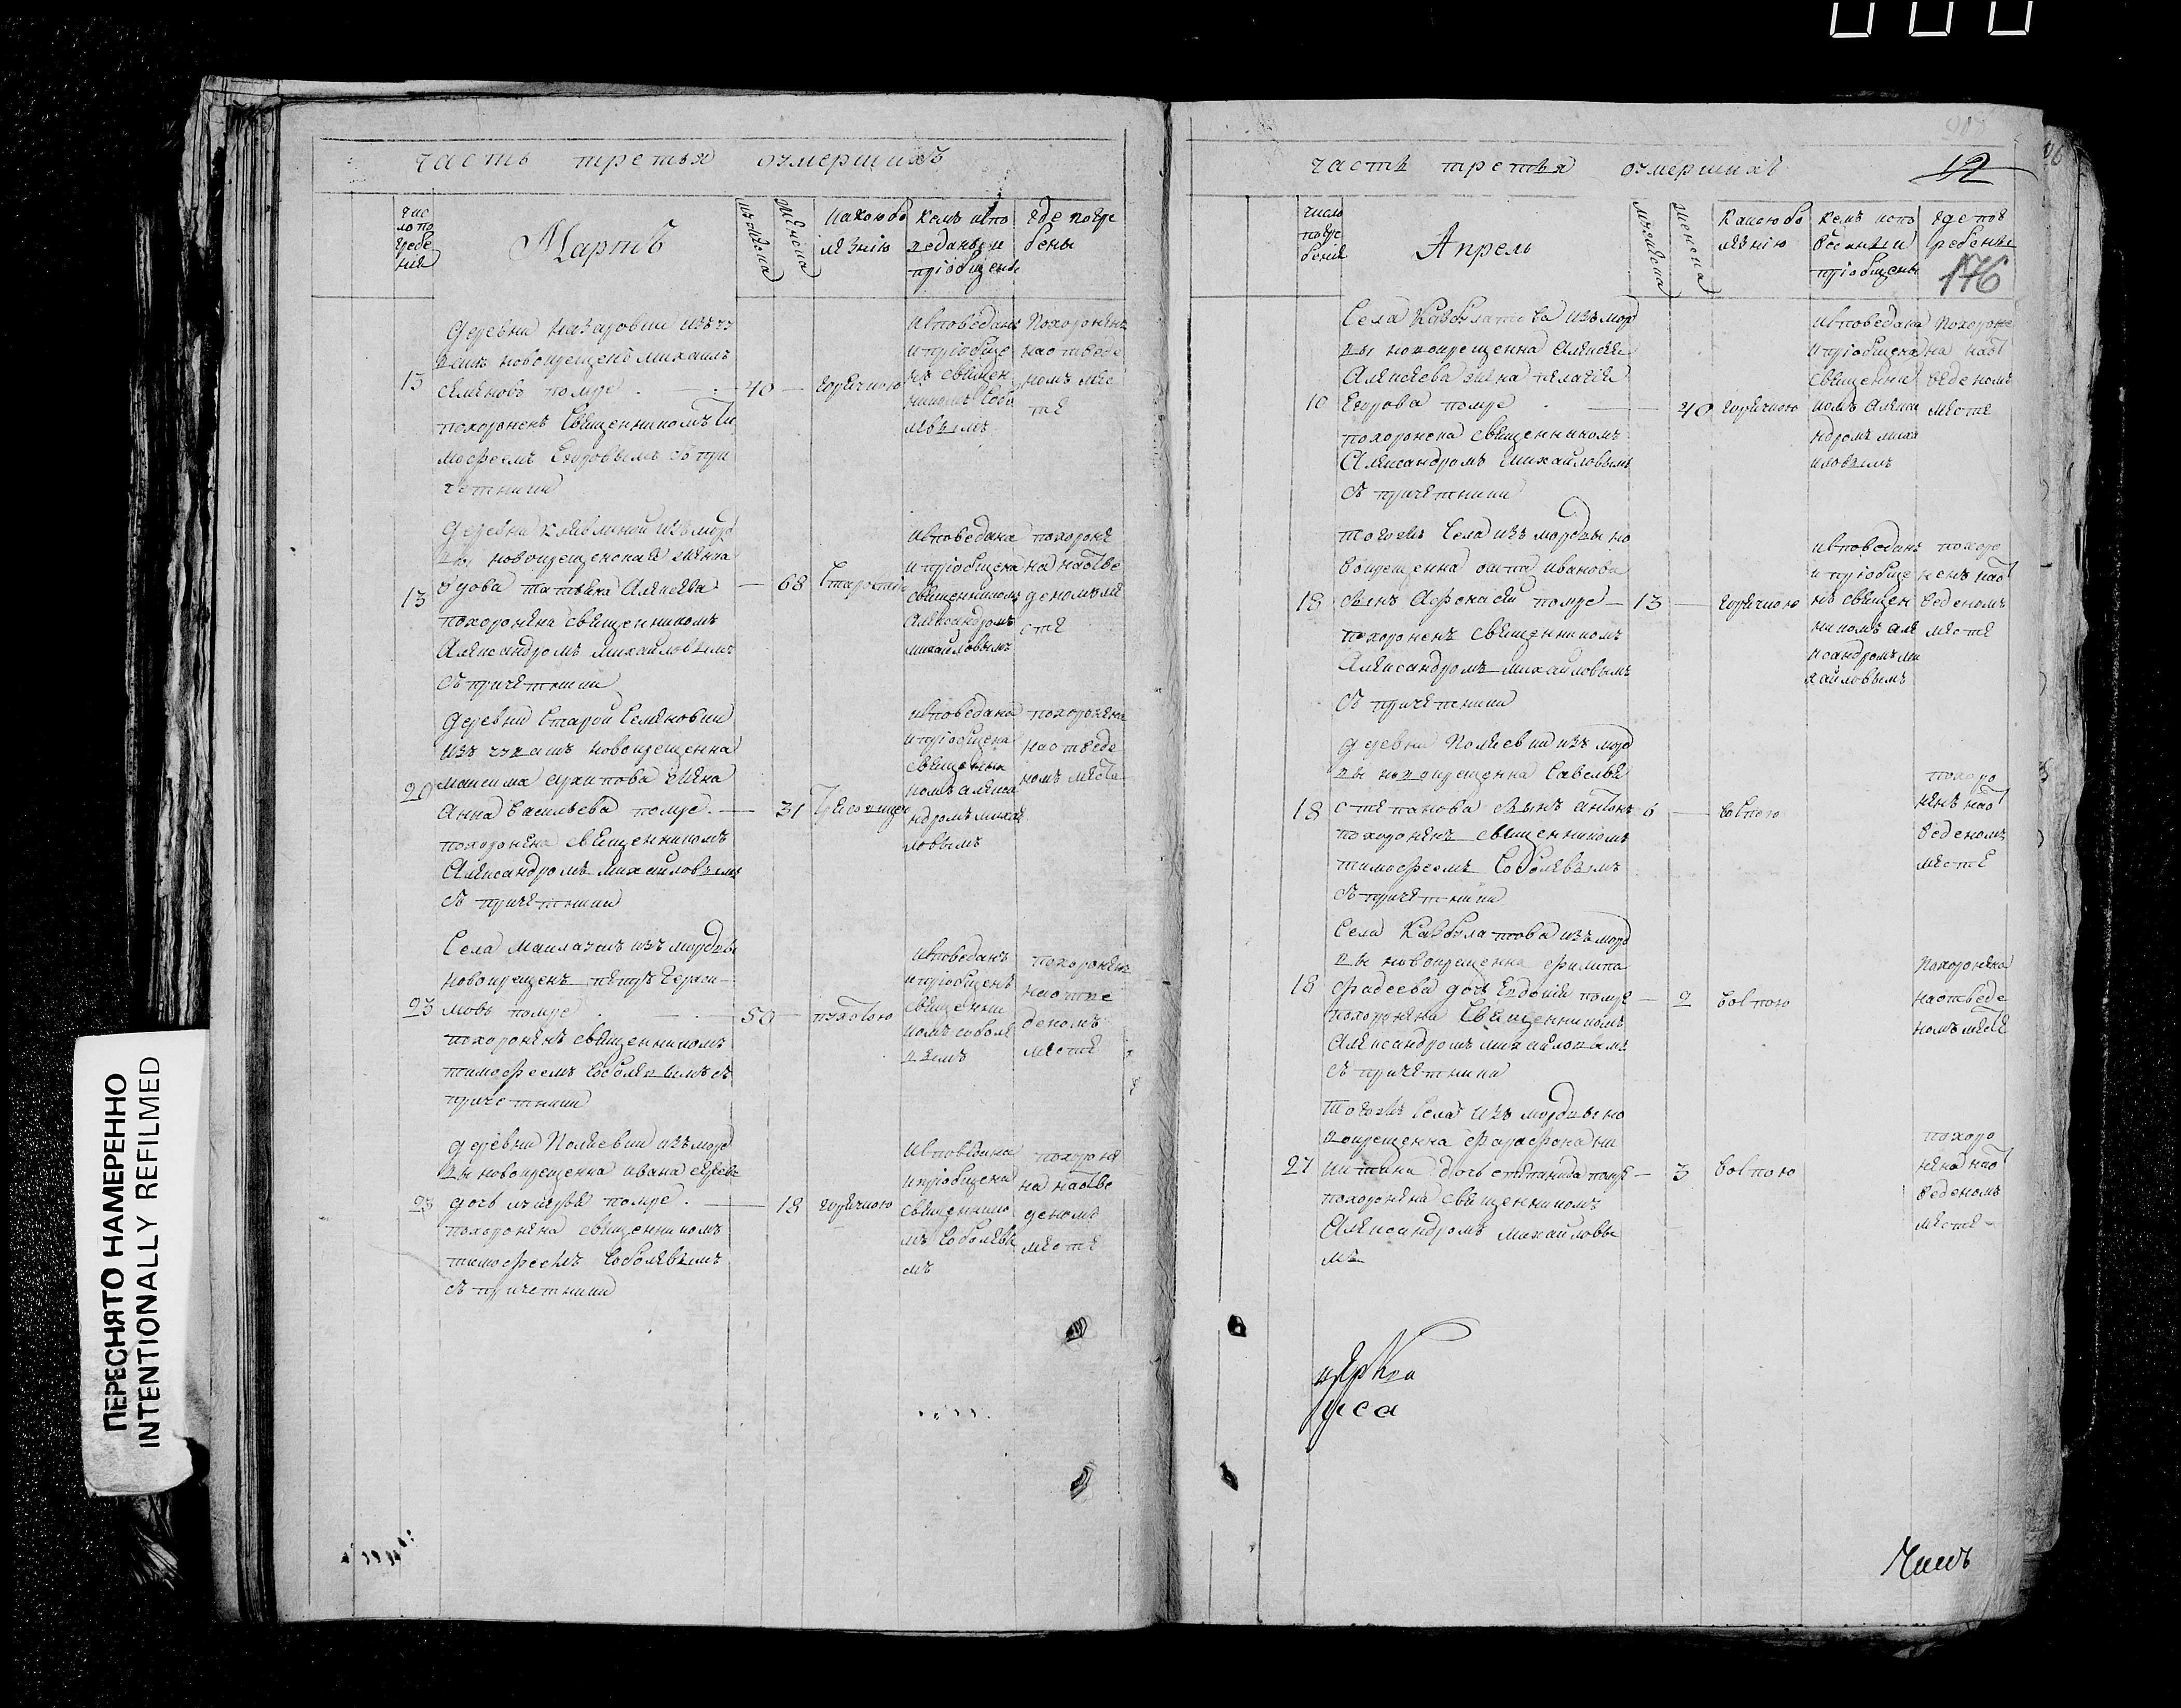 часть третья оумершихъ
чис
ло по
гребе
ния
Мартъ
мужеска
женска
какою бо
лезнію
кемъ испо
веданы и
пріобщены
где погре
бены
деревни Назаровки изъ чу
вашъ новокрещенъ михаилъ
13 семеновъ помре 40 горячкою
похороненъ священникомъ ти
мофеемъ
четники
исповеданъ
и пріобще
нъ священ
никомъ собо
левымъ
похороненъ
на отведе
номъ мес
те
деревни клявлиной изъ морд
вы новокрещенская женка
вдова татьяна Алексева 68 старостію
13 похоронена священникомъ
Александромъ михайловымъ
съ причетники
исповедана
и пріобщена
священникомъ
Александромъ
михайловымъ
похороне
на на отве
деномъ ме
сте
деревни Старой Семеновки
изъ чувашъ новокрещенна
20 максима архипова жена
Анна васильева помре 31
похоронена священникомъ
Александромъ михайловымъ
съ причетники
исповедана
и пріобщена
священни
комъ алекса
ндромъ михай
ловымъ
похоронена
на отведе
номъ месте
Села Маклаушъ изъ мордвы
новокрещенъ петръ гераси
23 мовъ помре 50
похороненъ священникомъ
тимофеемъ Соболевымъ съ
причетники
исповеданъ
и пріобщенъ
священни
комъ соболе
вымъ
похороненъ
на отве
деномъ
месте
деревни Полаевки изъ морд
вы новокрещенна ивана
23 дочь помре 18 горячкою
похоронена священникомъ
тимофеемъ Соболевымъ
съ причетники
исповедана
и пріобщена
священнико
мъ Соболевы
мъ
похороне
на на отве
деномъ
месте
часть третья оумершихъ
12
число
погре
бения
Апрель
мужеска
женска
Какою бо
лезнію
кемъ испо
веданы и
пріобщены
где пог
ребены
176
Села Кавбулатова изъ морд
вы новокрещенна Алексея
Алексеева жена пелагея
10 Егорова помре 40 горячкою
похоронена священникомъ
Александромъ михайловымъ
съ причетники
исповедана
и пріобщена
священни
комъ алекса
ндромъ миха
иловымъ
похороне
на на от
веденомъ
месте
тогожъ Села изъ мордвы но
вокрещенна ивана
18 сынъ Афонасей помре 13 горячкою
похороненъ священникомъ
Александромъ михайловымъ
съ причетники
исповеданъ
и пріобще
нъ священ
никомъ але
ксандромъ ми
хайловымъ
похоро
ненъ на от
веденомъ
месте
деревни Полаевки изъ морд
вы новокрещенна Савелья
18 степанова сынъ антонъ 6 воспою
похороненъ священникомъ
тимофеемъ Соболевымъ
съ причетники
похоро
ненъ на от
веденомъ
месте
Села Кавбулатова изъ морд
вы новокрещенна филипа
18 фадеева дочь Евдокия помре 2 воспою
похоронена Священникомъ
Александромъ михайловымъ
съ причетники
похоронена
на отведе
номъ месте
тогожъ Села изъ мордвы но
вокрещенна
27 никитина дочь степанида помре 3 воспою
похоронена священникомъ
Александромъ михайловы
мъ
похоро
нена на от
веденомъ
месте
Чинъ
ПЕРЕСНЯТО НАМЕРЕННО
INTENTIONALLY REFILMED